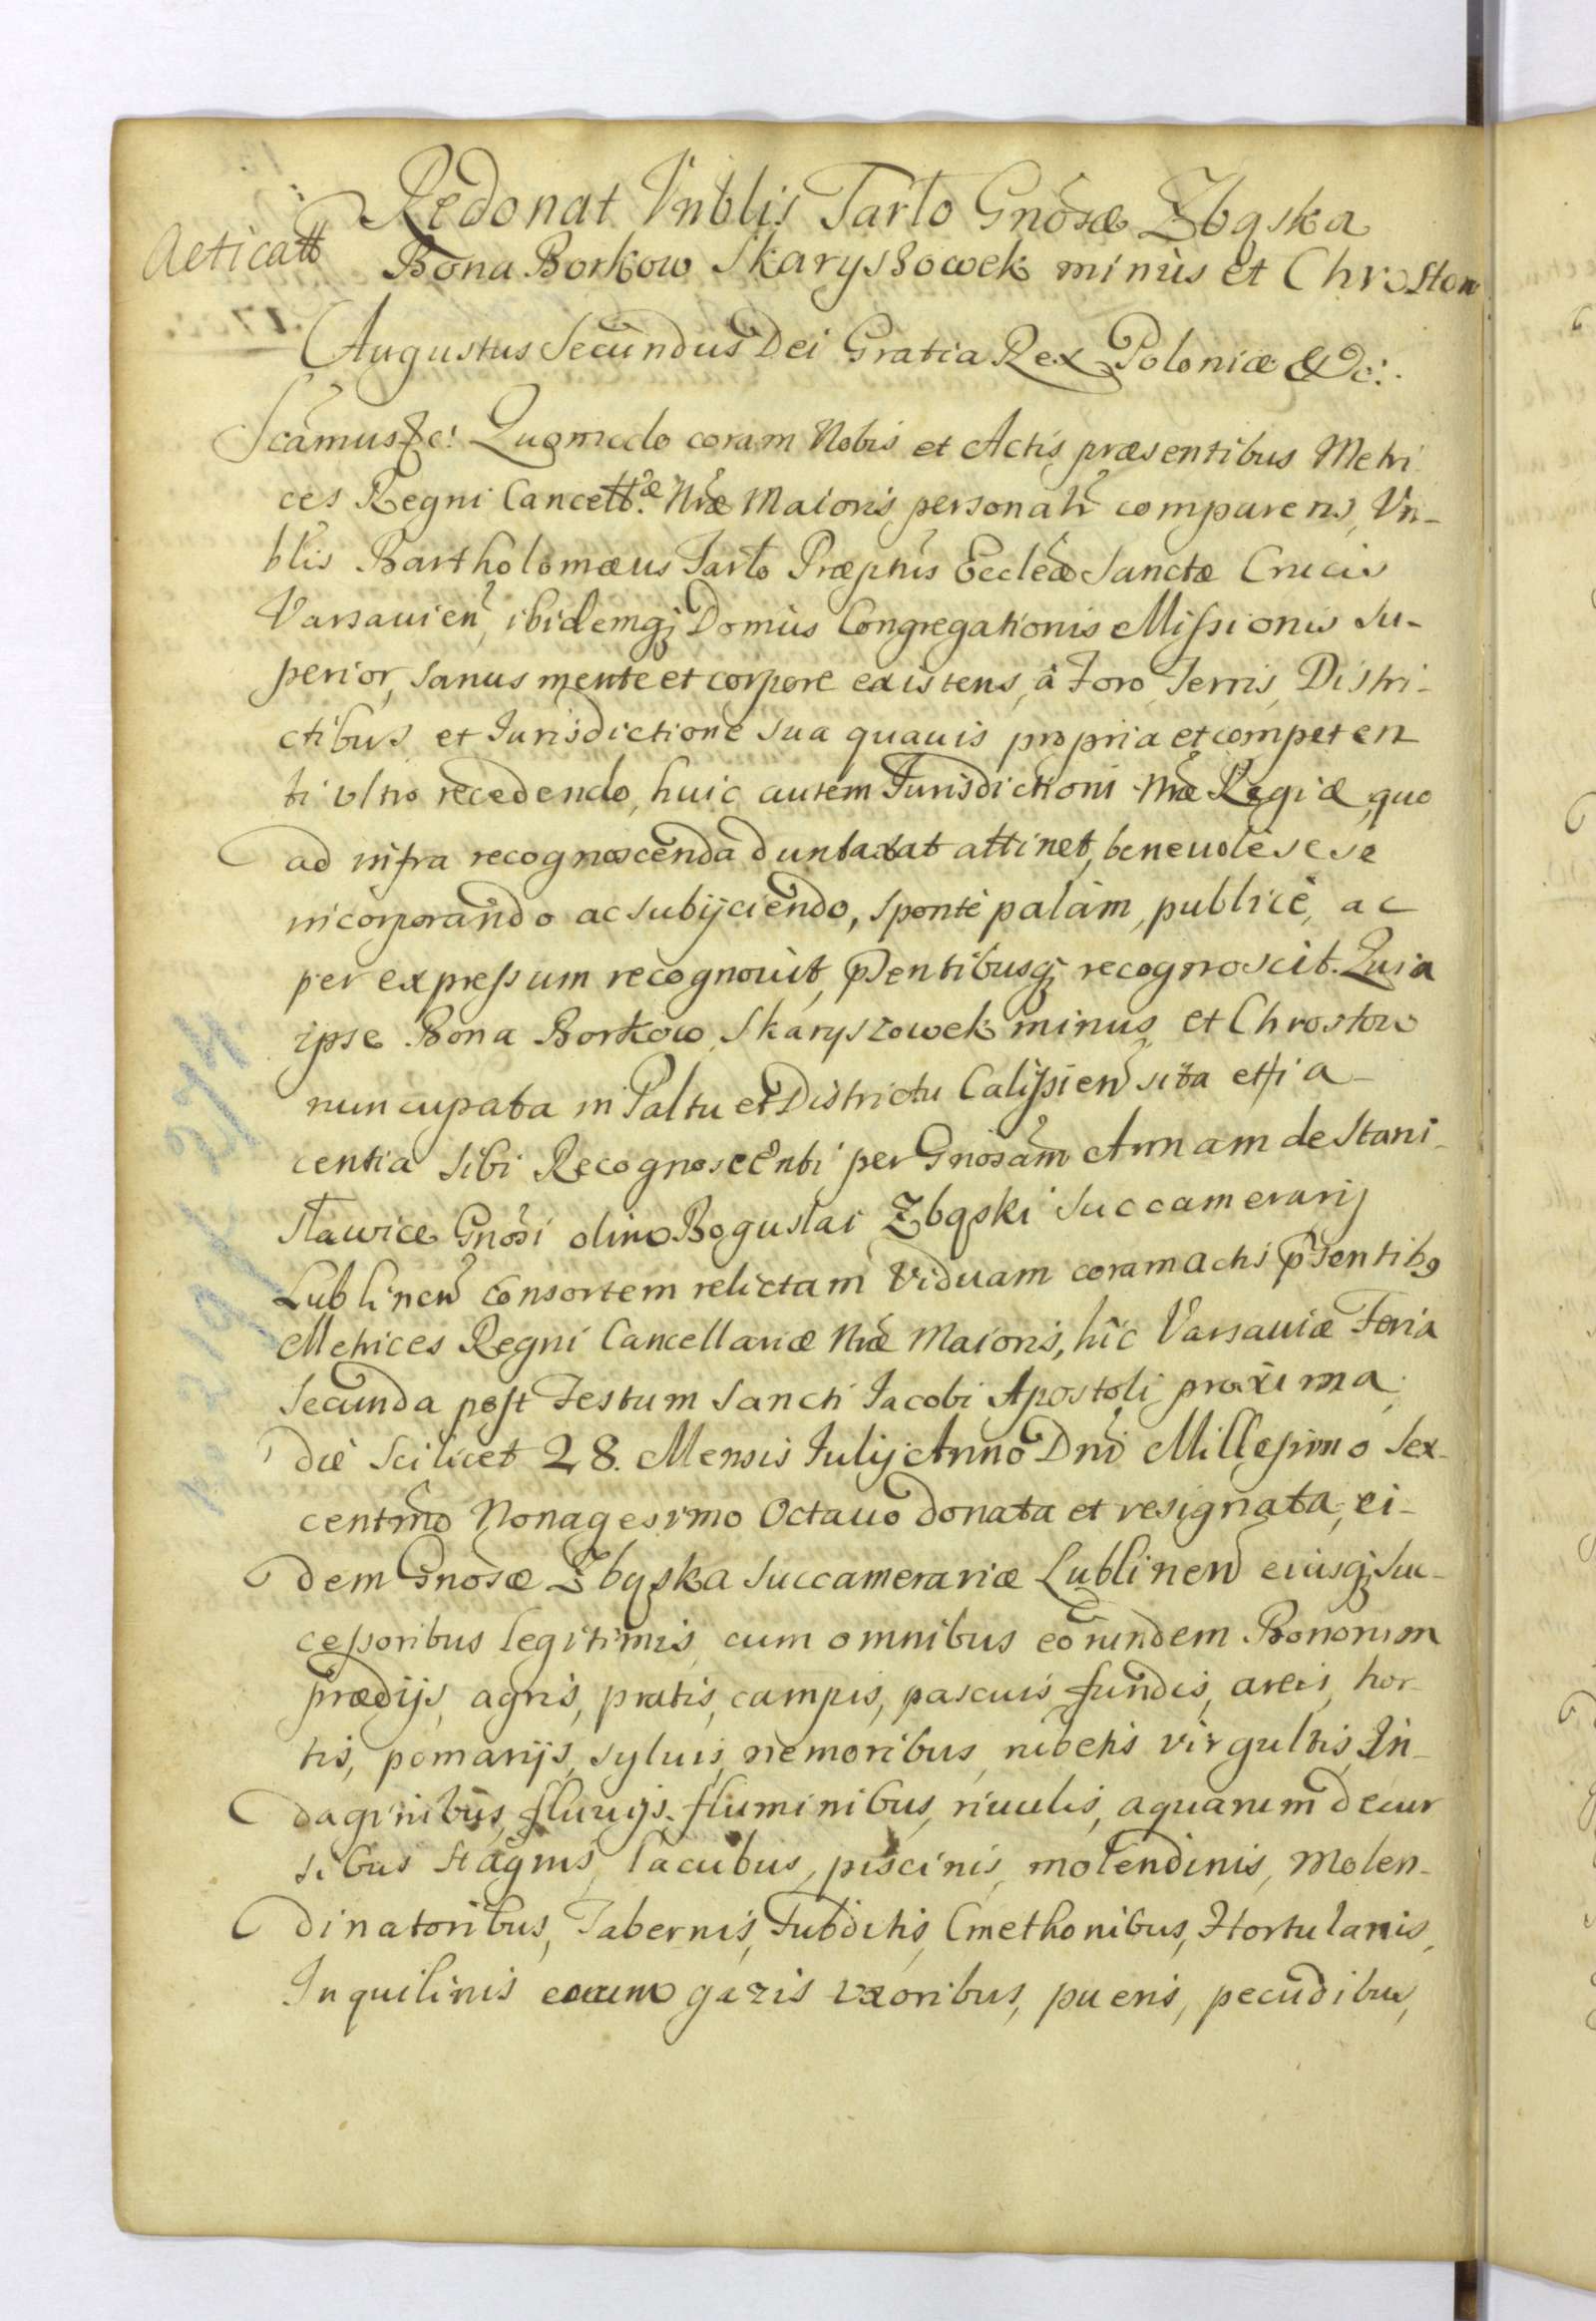 Redonat Vnblis Tarło Gnosæ Zbąska
Acticatt Bona Borkow Skaryszowek minus et Chrostow
Augustus Secundus Dei Gratia Rex Poloniæ &c:
Scamus &c: Quomodo coram Nobis et Actis præsentibus Metri
ces Regni Cancellæ Nræ Maioris personalr comparens, Vn-
blis Bartholomæus Tarło Præptus Eccleæ Sanctæ Crucis
Varsavien, ibidemq; Domus Congregationis Missionis Su-
perior, sanus mente et corpore existens, à Foro Terris, Distri-
ctibus et Iurisdictione sua quauis propria et competen
ti vltro recedendo, huic autem Iurisdictioni Nræ Regiæ, quo
ad infra recognoscenda duntaxat attinet, beneuolè sese
incorporando ac subijciendo, spontè palàm, publicè, ac
per expressum recognouit, psentibusq; recognoscit. Quia
ipse Bona Borkow, Skaryszowek minus, et Chrostow
nuncupata in Paltu et Districtu Calissien sita et ia-
centia sibi Recognoscenti per Gnosam Annam de Stani-
sławice Gnosi olim Bogusłai Zbąski Succamerarij
Lublinen consortem relictam Viduam coram actis psentibs
Metrices Regni Cancellariæ Nræ Maioris, hic Varsauiæ Feria
Secunda post Festum Sancti Iacobi Apostoli proxima
die scilicet 28. Mensis Iulij Anno Dni Millesimo Sex-
centmo Nonagesimo Octauo donata et resignata, ei-
dem Gnosæ Zbąska Succamerariæ Lublinen eiusq; Suc-
cessoribus legitimis, cum omnibus eorundem Bonorum
prædijs, agris, pratis, campis, pascuis, fundis, areis, hor-
tis, pomarijs, syluis, nemoribus, rubetis virgultis, In-
daginibus, fluuijs, fluminibus, riuulis, aquarum decur
sibus stagnis, lacubus, piscinis, molendinis, Molen-
dinatoribus, Tabernis, Subditis, Cmethonibus, Hortulanis,
Inquilinis eorum gazis vxoribus, pueris, pecudibus,